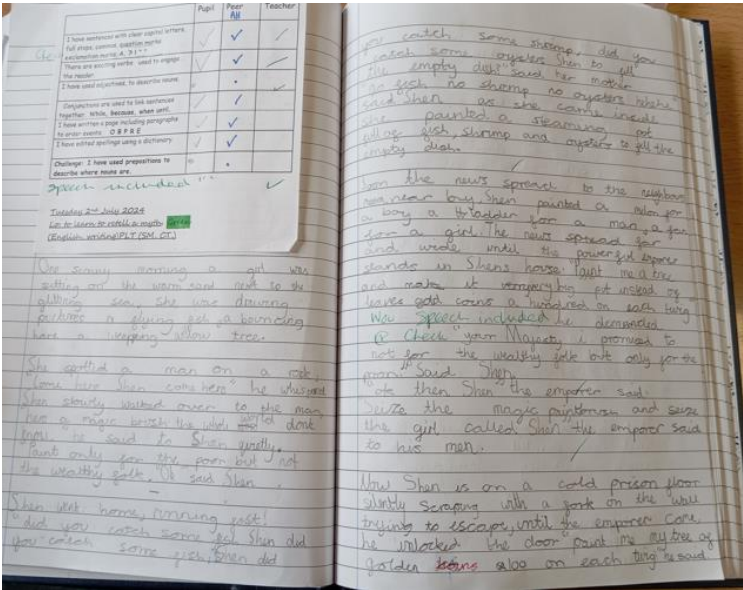 Pupil Peer Teacher
AH
I have sentences with clear capital letters,
full stops, commas, question marks
exclamation marks. A . ? ! " "
There are exciting verbs used to engage
the reader.
I have used adjectives to describe nouns
Conjunctions are used to link sentences
together. While, because, when until.
I have written a page including paragraphs
to order events. O B P R E
I have edited spellings using a dictionary
Challenge: I have used prepositions to
describe where nouns are.
Speech included " "
Tuesday 2nd July 2024
Lo: to learn to retell a myth.
(English writing)PLT (SM, CT.)
One sunny morning a girl was
sitting on the warm sand next to the
sea, she was drawing
a flying fish, a bouncing
hare a weeping willow tree.
She a man on a rock,
"Come here Shen come here" he
Shen slowly walked over to the man,
magic the whole world dont
he said to Shen quietly.
Paint only for the poor but not
the wealthy folk. "Ok" said Shen
Shen went home, running fast!
"did you catch some fish Shen did
you catch some fish, Shen did
you catch some shrimp, did you
catch some oysters Shen to fill
the empty dish" said her mother
"no fish no shrimp no oysters
said Shen as she came inside
she painted a steaming pot
full of fish, shrimp and oysters to fill the
empty dish.
Soon the news spread to the
near by, Shen painted a for
a boy a for a man, a
for a girl. The news spread far
and wide until the powerful
stands in Shens house. "Paint me a tree
and make it very big but instead of
leaves gold coins a hundred on each twig
Wow Speech included he demanded
Check "your Majesty i promised to
not for the wealthy folk but only for the
poor" Said Shen.
then Shen the emporer said.
Seize the magic and seize
the girl called Shen" the emporer said
to his men.
Now Shen is on a cold prison floor
silently scraping with a fork on the wall
trying to escape, until the emporer came
he unlocked the door "paint me my tree of
golden on each twig" he said